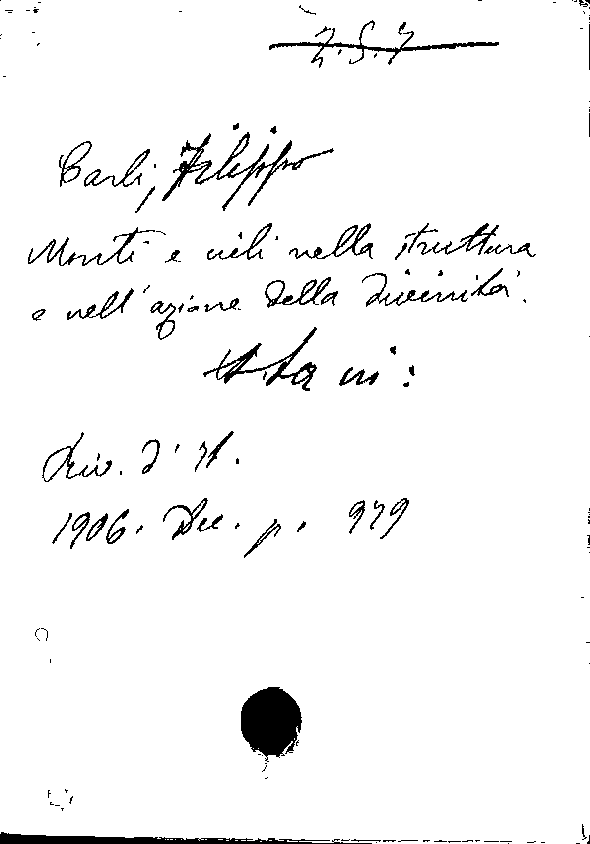 7.S.7
Carli, Filippo
Monti e cieli nella struttura
e nell'azione della divinità.
Sta in:
Riv. d'It.
1906. Dec. p. 979